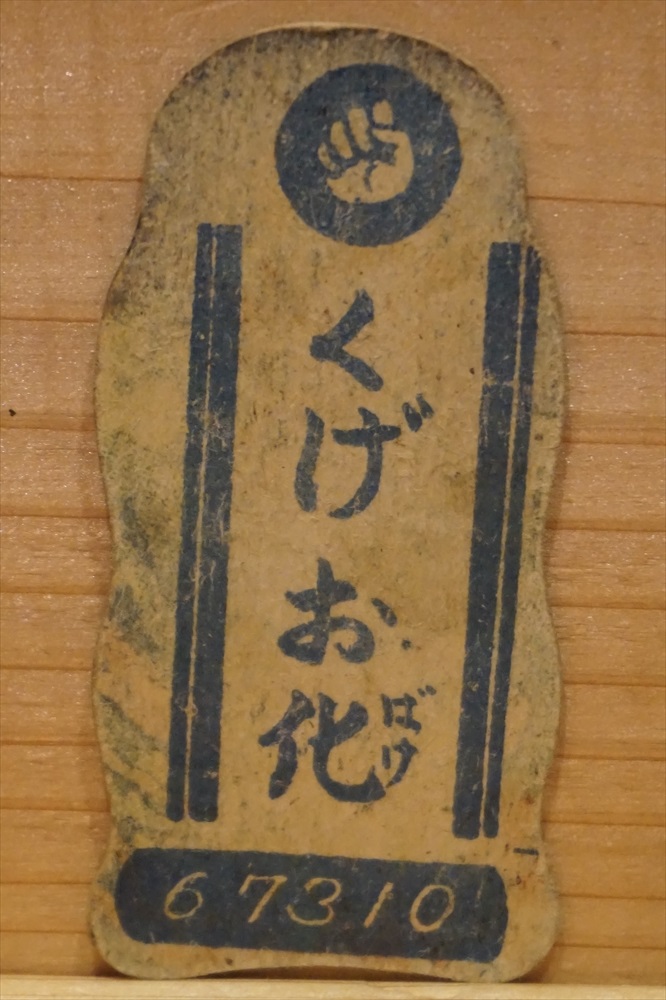 くげお化
ばけ
67310